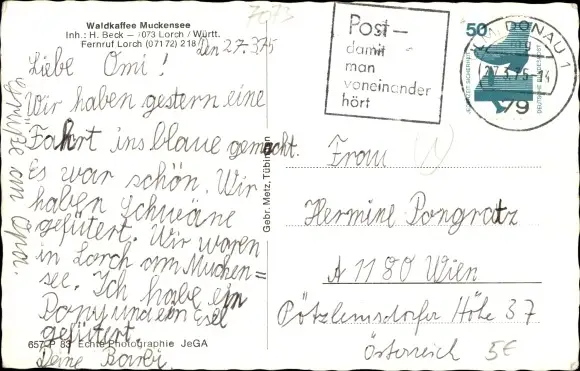 Waldkaffee Muckensee
Inh.: H. Beck - 7073 Lorch / Württ.
Fernruf Lorch (07172) 218
7073
Den 27.375
Liebe Omi!
Wir haben gestern eine
Fahrt ins blaue gemacht.
Es war schön. Wir
haben Schwäne
gefütert. Wir waren
in Lorch am Muchen=
see. Ich habe ein
Pony und ein Esel
gefütert.
Deine Barbi.
Grüße an Opa.
657 P 83 Echte Photographie JeGA
Gebr. Metz, Tübingen
Post-
damit
man
voneinander
hört
50
DONAU 1
27.3.75-14
79
DEUTSCHE BUNDESPOST
Frau
Hermine Pongratz
A 1180 Wien
Pötzlemsdorfer Höhe 37
Österreich
5€